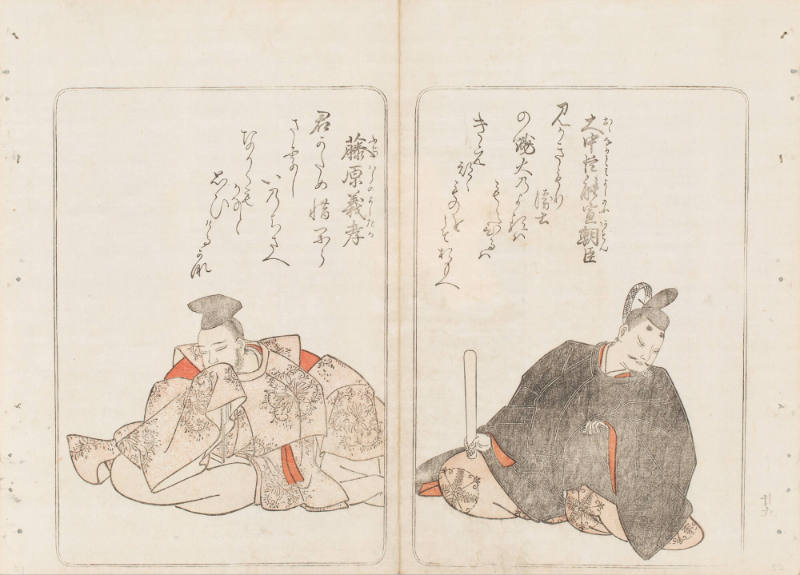 大中臣能宣朝臣
みかきもり
衛士
もえひるハ
きえ
つゝ
ものをこそおもへ
藤原義孝
ふぢはらのよしたか
君かため惜から
さりし
いのちさへ
なかくも
かなと
おもひけるかな